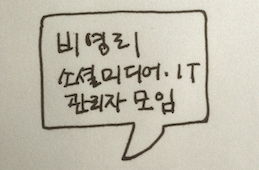 비영리
소셜미디어·IT
관리자 모임